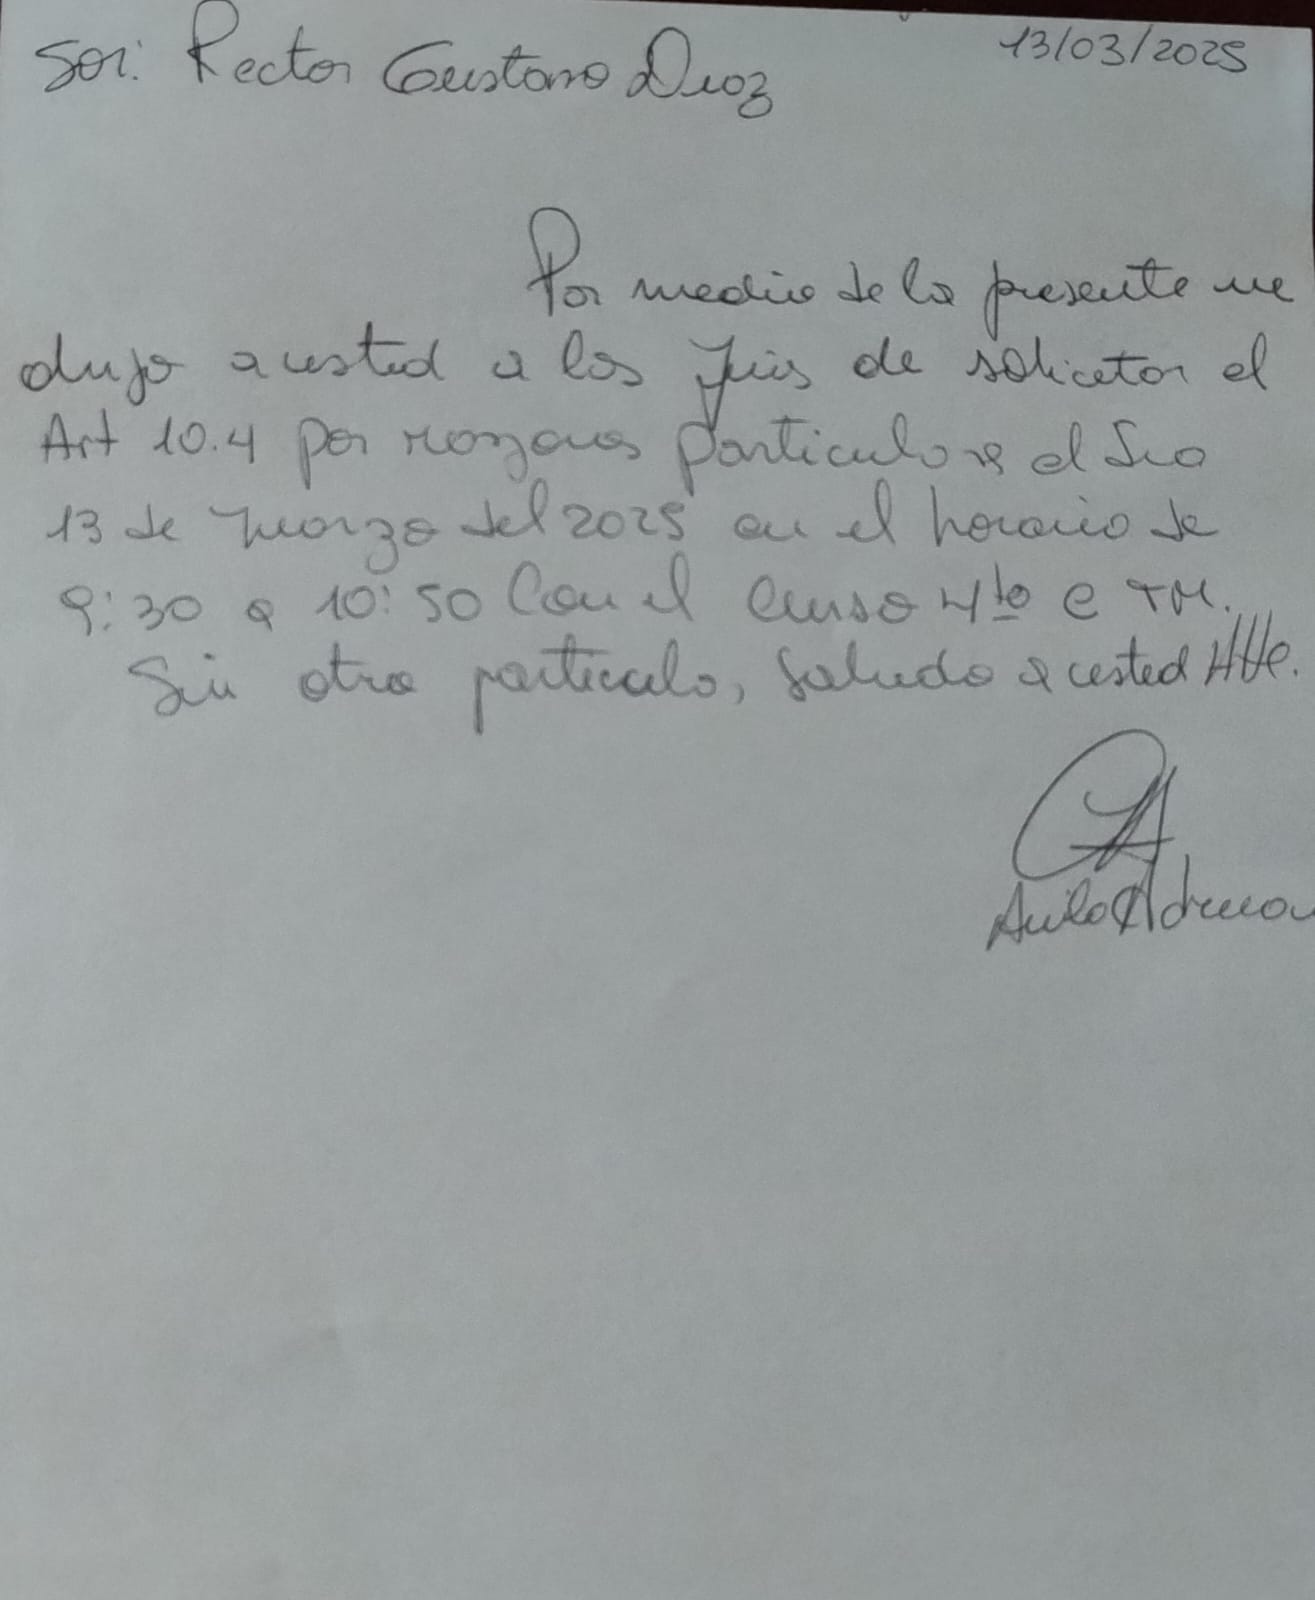 13/03/2025
Sor: Rector Gustavo Diaz
Por medio de la presente me
dirijo a usted a los fines de solicitar el
Art 10.4 por razones particulares el día
13 de marzo del 2025 en el horario de
9:30 a 10:50 Con el Curso 4to e TM.
Sin otro particular, saludo a usted Atte.
Adriana